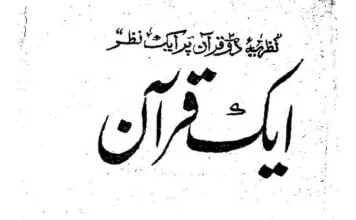 نظریۂ دو قرآن پر ایک نظر"
ایک قرآن